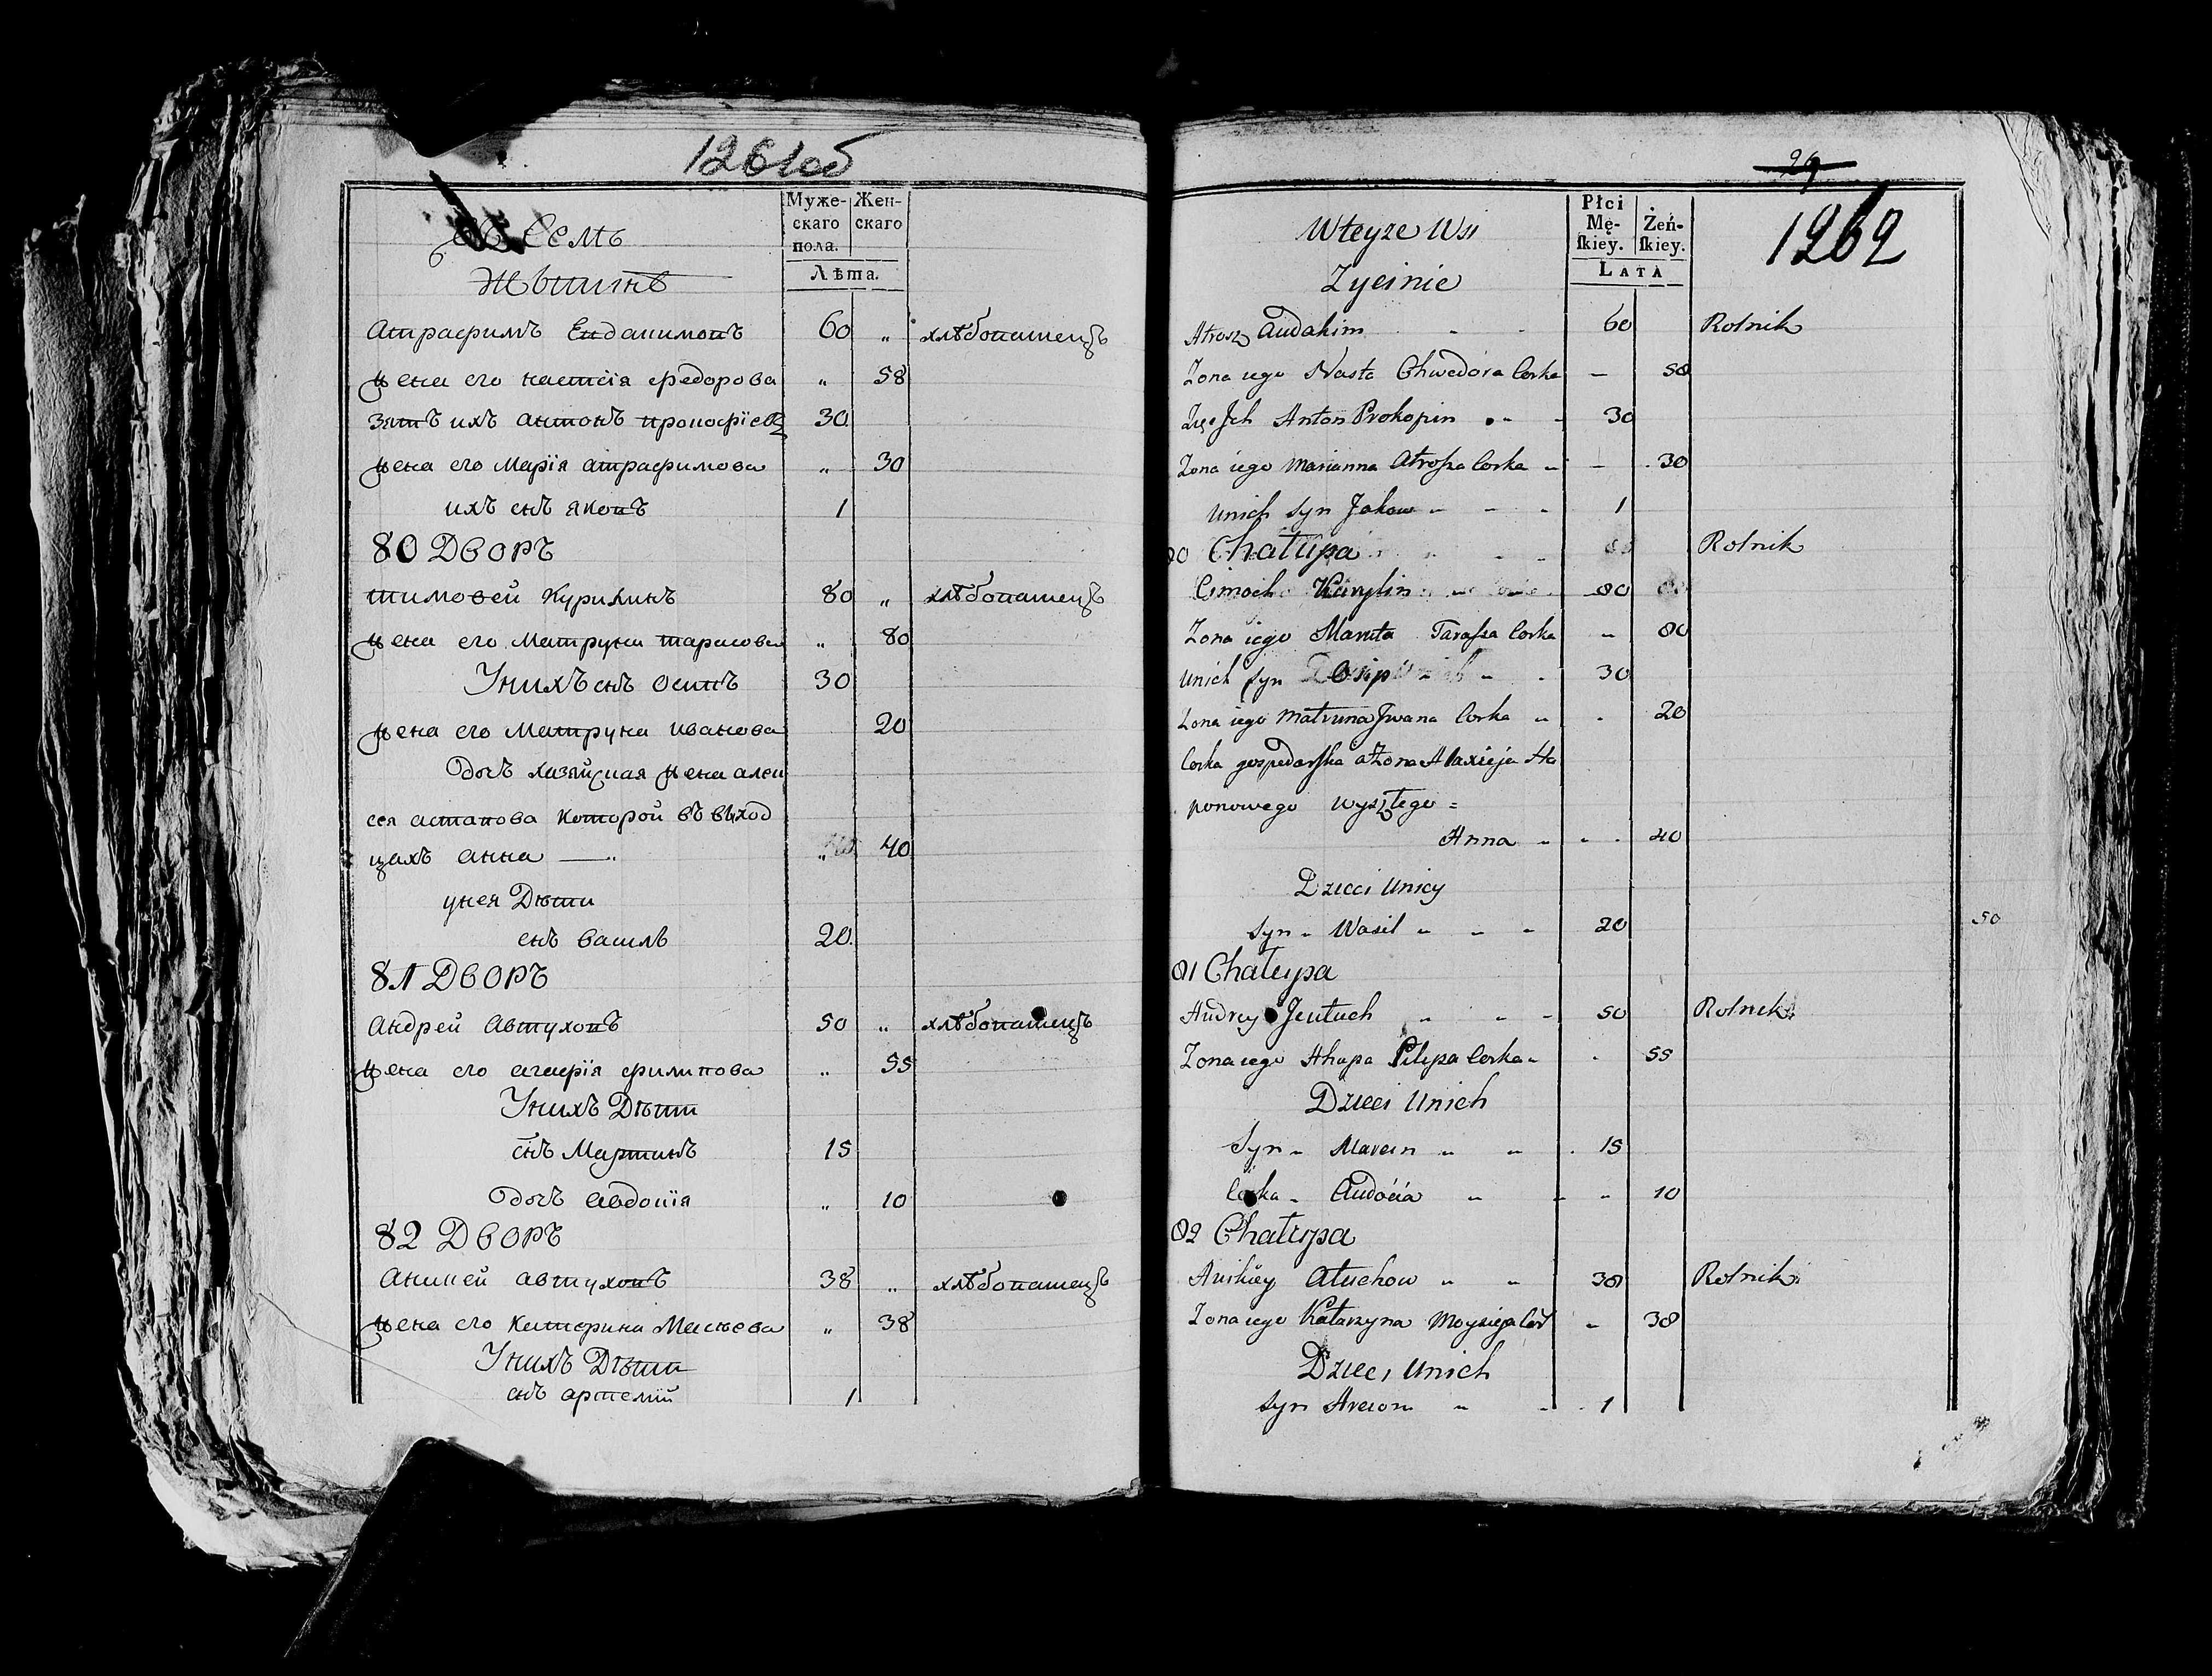 1261об
Муже-
скаго
пола.
Жен-
скаго
Лѣта.
Селѣ
Жытинѣ
Атрафимъ Евдакимовъ 60 „ хлѣбопашецъ
жена его настсія федорова „ 58
зять ихъ антонъ прокофіевъ 30
жена его Марія атрафимова „ 30
ихъ снъ яковъ 1
80 Дворъ
тимофей Курилинъ 80 „ хлѣбопашецъ
жена его Матруна тарасова „ 80
Унихъ снъ осипъ 30
жена его Матруна иванова 20
дочь хазяйская жена алек
сея астапова которой въ выход
цахъ анна — „ 40
унея Дѣти
снъ василь 20
81 Дворъ
Андрей Автуховъ 50 „ хлѣбопашецъ
жена его агафія филипова „ 55
Унихъ Дѣти
снъ Мартинъ 15
дочь Авдокія „ 10
82 Дворъ
Аникей автуховъ 38 „ хлѣбопашецъ
жена его Катерина Мосѣева „ 38
Унихъ Дѣти
снъ артемій 1
29
1262
Płci
Mę-
skiey.
Żeń-
skiey.
LATA
Wteyze Wsi
Zycinie
Atrosz Audakim - - 60 Rolnik
Zona iego Nasta Chwedora Corka — 58
Zięć Jch Anton Prokopin - - 30
Zona iego Marianna Atrosza Corka - — 30
Unich Syn Jakow - - - 1
80 Chałupa Rolnik
Cimoch Kurylin 80
Zona iego Maruta Tarassa Corka - 80
Unich Syn Osip - - 30
Zona iego Matruna Jwana Corka - - 20
Corka gospodarska a Zona Alaxieja Sta
ponowego wyszłego =
Anna - - - 40
Dzieci Unicy
Syn - Wasil - - - 20
50
81 Chałupa
Audrey Jeutuch - - - 50 Rolnik
Zona iego Ahapa Pilipa Corka - - 55
Dzieci Unich
Syn - Marcin - - - 15
Corka - Audocia - - - 10
82 Chałupa
Anikiey Atuchow - - 38 Rolnik
Zona iego Katarzyna Moysieja Cor - 38
Dzieci Unich
Syn Arciom - - - 1